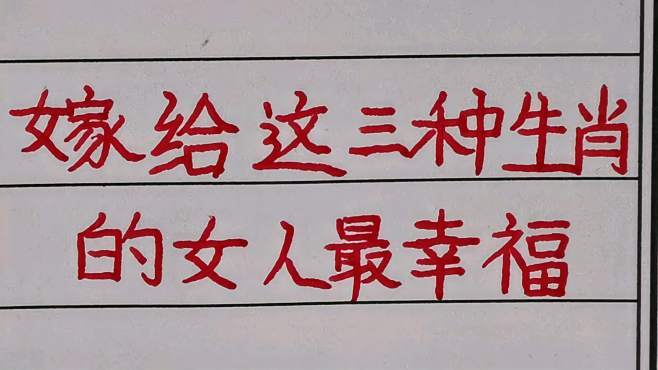 嫁给这三种生肖
的女人最幸福